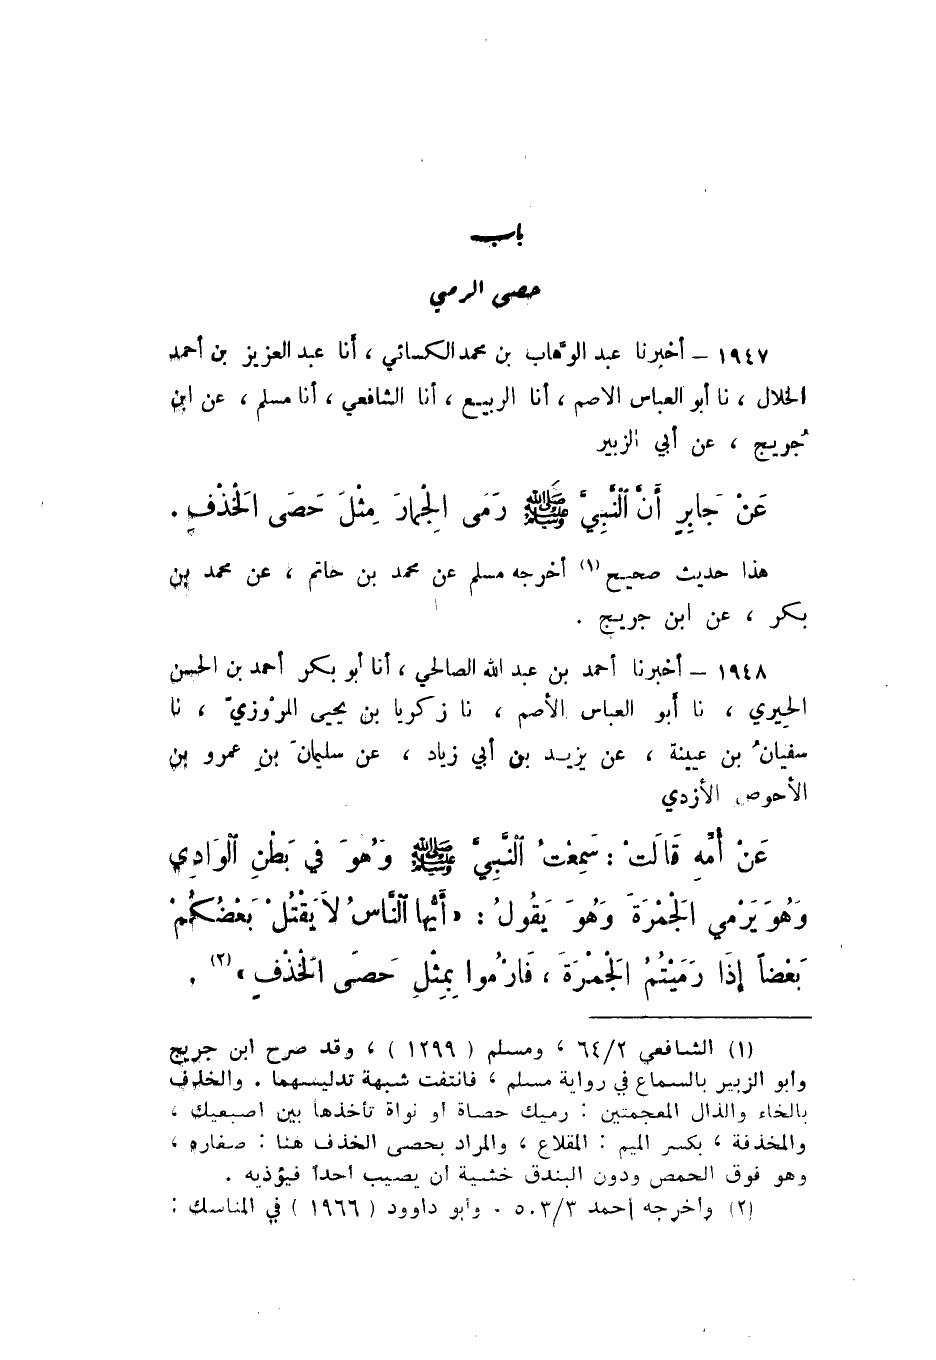 باب
حصى الرمي
١٩٤٧ – أخبرنا عبد الوهّاب بن محمد الكسائي ، أنا عبد العزيز بن أحمد
الخلال ، نا أبو العباس الاصم ، أنا الربيع ، أنا الشافعي ، أنا مسلم ، عن ابن
جُريج ، عن أبي الزبير
عَنْ جَابِرٍ أَنَّ ٱلنَّبِيَّ ﷺ رَمَى الْجِمَارَ مِثْلَ حَصَى الْخَذْفِ .
هذا حديث صحيح (١) أخرجه مسلم عن محمد بن حاتم ، عن محمد بن
بكر ، عن ابن جريج .
١٩٤٨ – أخبرنا أحمد بن عبد الله الصالحي ، أنا أبو بكر أحمد بن الحسن
الحِيري ، نا أبو العباس الأصم ، نا زكريا بن يحيى المرْوزيّ ، نا
سفيانُ بن عيينة ، عن يزيد بن أبي زياد ، عن سليمانَ بنِ عمرو بن
الأحوص الأزدي
عَنْ أُمِّهِ قَالَتْ : سَمِعْتُ ٱلنَّبِيَّ ﷺ وَهُوَ فِي بَطْنِ ٱلْوَادِي
وَهُوَ يَرْمِي الْجَمْرَةَ وَهُوَ يَقُولُ : « أَيُّهَا ٱلنَّاسُ لاَ يَقْتُلْ بَعْضُكُمْ
بَعْضاً إِذَا رَمَيْتُمُ الْجَمْرَةَ ، فَارْمُوا بِمِثْلِ حَصَى الْخَذْفِ » (٢) .
(١) الشافعي ٦٤/٢ ، ومسلم ( ١٢٩٩ ) ، وقد صرح ابن جريج
وأبو الزبير بالسماع في رواية مسلم ، فانتفت شبهة تدليسهما . والخذف
بالخاء والذال المعجمتين : رميك حصاة أو نواة تأخذها بين اصبعيك ،
والمخذفة ، بكسر الميم : المقلاع ، والمراد بحصى الخذف هنا : صغاره ،
وهو فوق الحمص ودون البندق خشية أن يصيب أحداً فيؤذيه .
(٢) وأخرجه أحمد ٥٠٣/٣ . وأبو داوود ( ١٩٦٦ ) في المناسك :